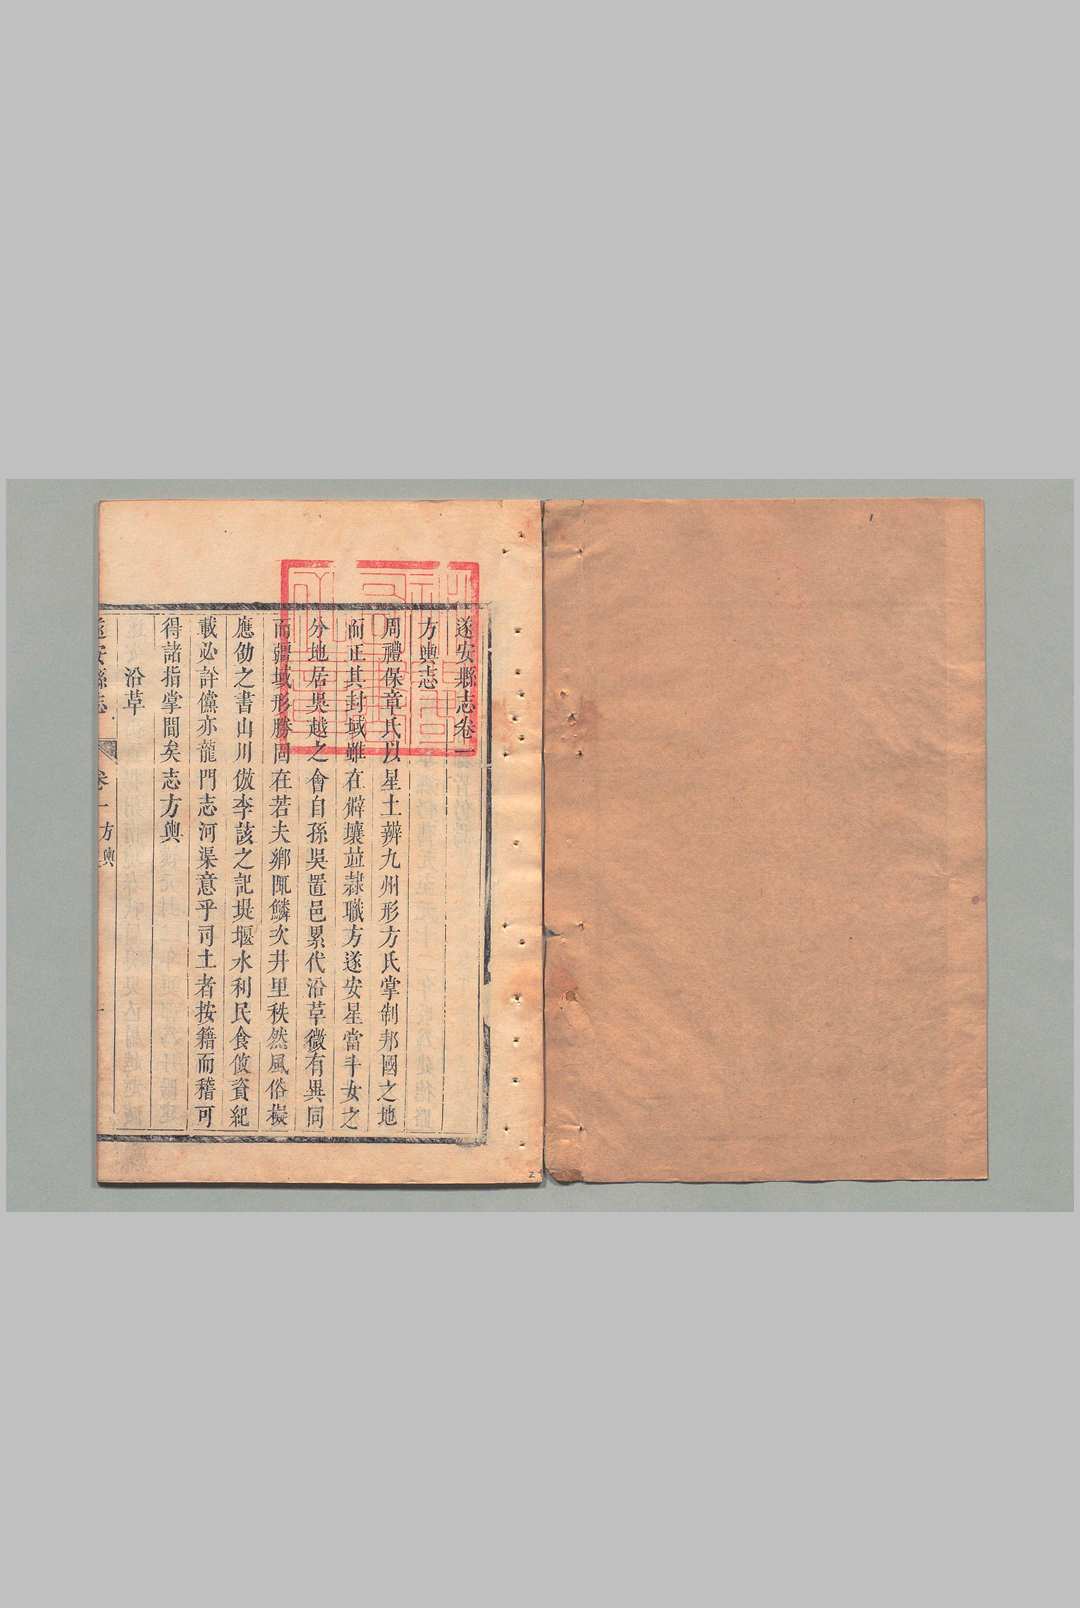 遂安縣志卷一
方輿志
周禮保章氏以星土辨九州形方氏掌制邦國之地
而正其封域雖在僻壤並隸職方遂安星當斗女之
分地居吳越之會自孫吳置邑累代沿革微有異同
而疆域形勝固在若夫鄉甿鱗次井里秩然風俗擬
應劭之書山川倣李該之記堤堰水利民食攸資紀
載必詳儻亦龍門志河渠意乎司土者按籍而稽可
得諸指掌間矣志方輿
沿革
遂安縣志 卷一 方輿 一